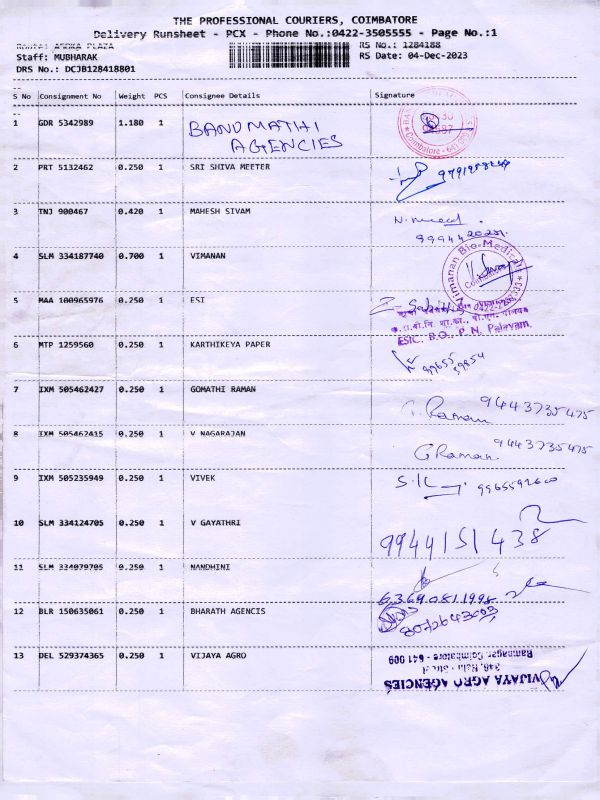 THE PROFESSIONAL COURIERS, COIMBATORE
Delivery Runsheet - PCX - Phone No.:0422-3505555 - Page No.:1
PLAZA
RS No.: 1284188
Staff: MUBHARAK
RS Date: 04-Dec-2023
DRS No.: DCJB128418801
S No Consignment No Weight PCS Consignee Details Signature
1 GDR 5342989 1.180 1 BANDMATHI
AGENCIES
2 PRT 5132462 0.250 1 SRI SHIVA MEETER
3 TNJ 900467 0.420 1 MAHESH SIVAM
4 SLM 334187740 0.700 1 VIMANAN
Vimanan Bio-Medical
5 MAA 100965976 0.250 1 ESI
ESIC. B.O., P. N. Palayam.
6 MTP 1259560 0.250 1 KARTHIKEYA PAPER
7 IXM 505462427 0.250 1 GOMATHI RAMAN
Raman 9443735475
8 IXM 505462415 0.250 1 V NAGARAJAN
GRaman 9443735475
9 IXM 505235949 0.250 1 VIVEK
10 SLM 334124705 0.250 1 V GAYATHRI
9944151438
11 SLM 334079705 0.250 1 NANDHINI
6369081998
12 BLR 150635061 0.250 1 BHARATH AGENCIS
13 DEL 529374365 0.250 1 VIJAYA AGRO
VIJAYA AGRO AGENCIES
Ramnagar, Coimbatore - 641 009